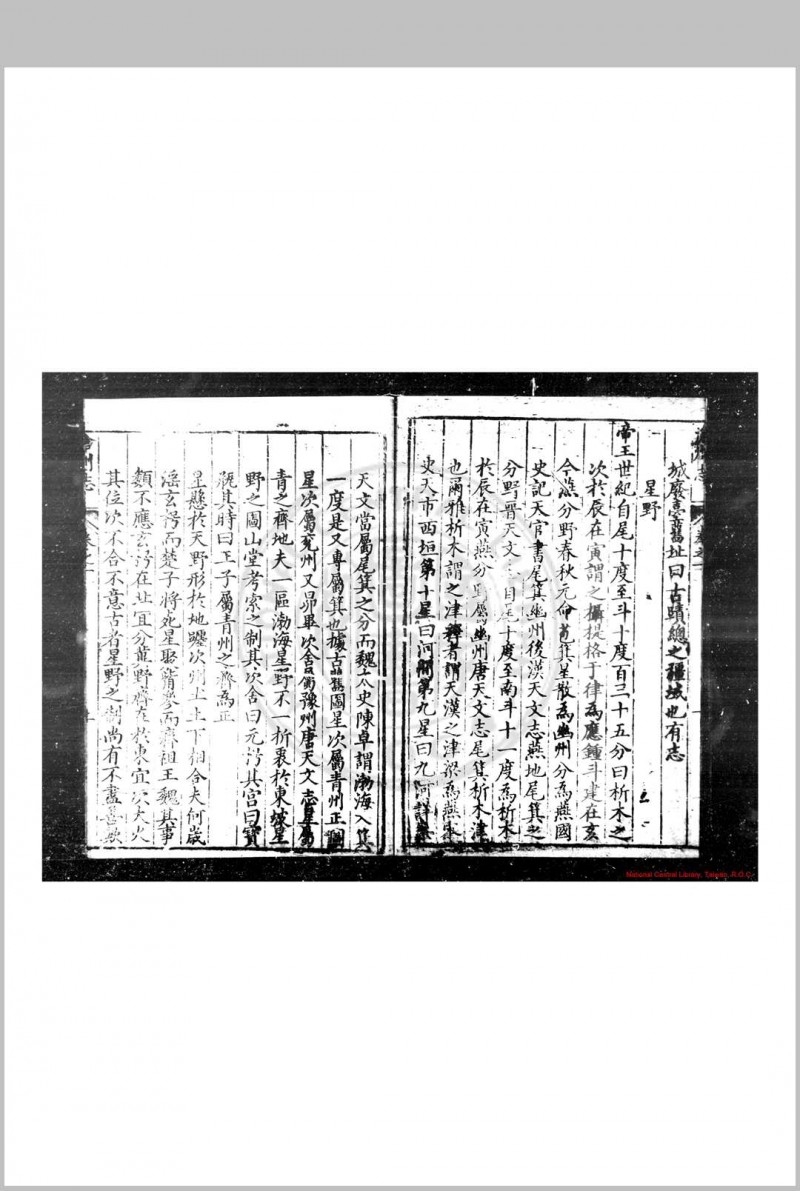 城廢惡舊址曰古蹟總之疆域也有志
星野
帝王世紀自尾十度至斗十度百三十五分曰析木之
次於辰在寅謂之攝提格于律為應鍾斗建在亥
今燕分野春秋元命苞箕星散為幽州分為燕國
史記天官書尾箕幽州後漢天文志燕地尾箕之
分野晋天文 自尾十度至南斗十一度為析木
於辰在寅燕分野屬幽州唐天文志尾箕析木津
也爾雅析木謂之津釋者謂天漢之津梁為燕
史天市西垣第十星曰河間第九星曰九河詳
天文當屬尾箕之分而魏太史陳卓謂渤海入箕
一度是又專屬箕也據古舊圖星次屬青州正
星次屬兗州又昴畢次舍屬豫州唐天文志星屬
青之齊地夫一區渤海星野不一折衷於東坡星
野之圖山堂考索之制其次舍曰元枵其宮曰寶
瓶其時曰壬子屬青州之齊為正
星懸於天野形於地躔次州土上下相合夫何歲
淫玄枵而楚子將死星聚觜參而齊祖王魏其事
類不應玄枵在北宜分冀野齊在於東宜次大火
其位次不合不意古者星野之制尚有不盡善歟
州志
National Central Library, Taiwan, R.O.C.